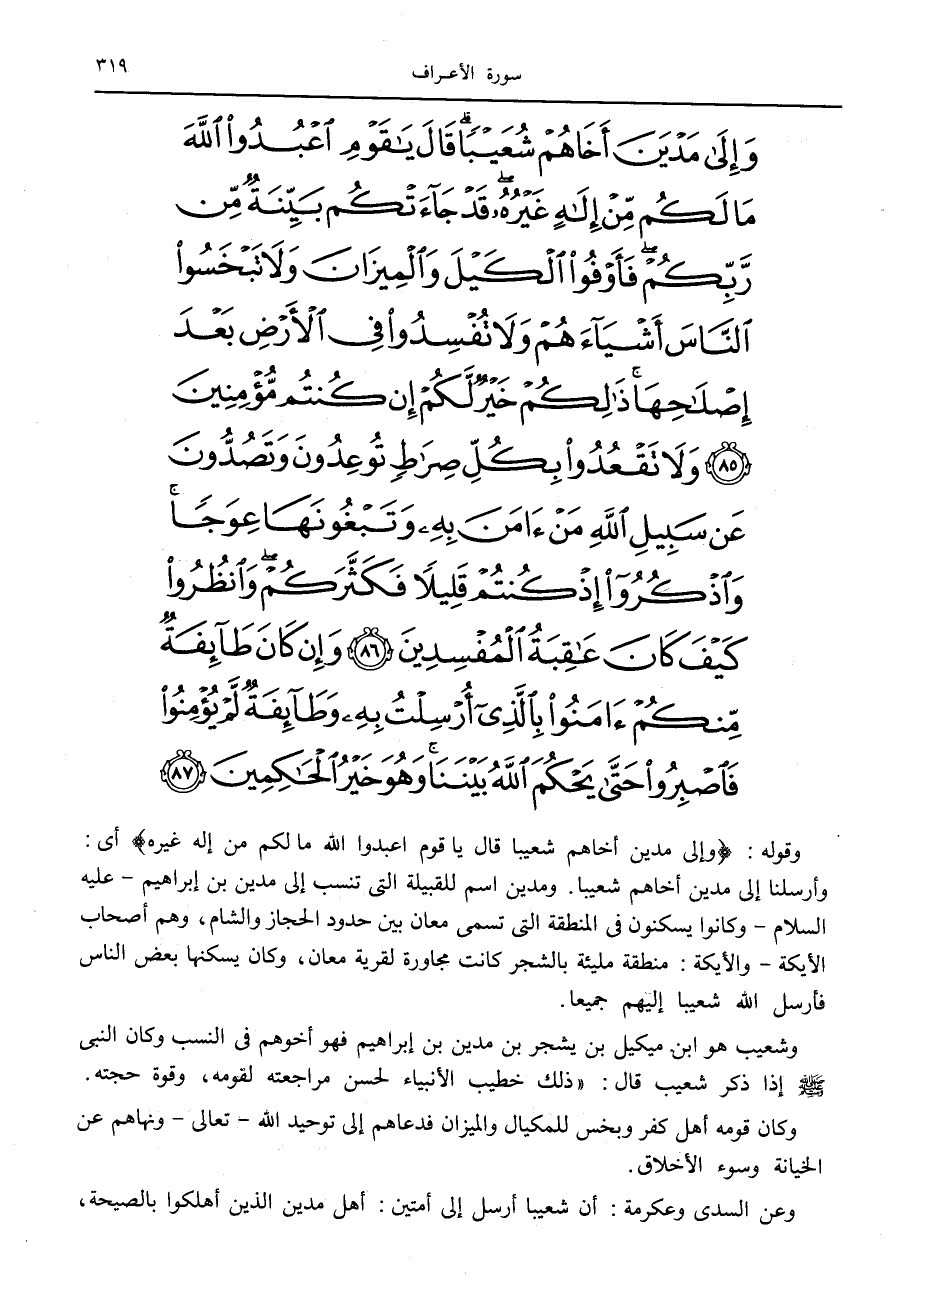 سورة الأعراف
٣١٩
وَإِلَىٰ مَدْيَنَ أَخَاهُمْ شُعَيْبًا ۗ قَالَ يَـٰقَوْمِ ٱعْبُدُوا۟ ٱللَّهَ
مَا لَكُم مِّنْ إِلَـٰهٍ غَيْرُهُۥ ۖ قَدْ جَآءَتْكُم بَيِّنَةٌ مِّن
رَّبِّكُمْ ۖ فَأَوْفُوا۟ ٱلْكَيْلَ وَٱلْمِيزَانَ وَلَا تَبْخَسُوا۟
ٱلنَّاسَ أَشْيَآءَهُمْ وَلَا تُفْسِدُوا۟ فِى ٱلْأَرْضِ بَعْدَ
إِصْلَـٰحِهَا ۚ ذَٰلِكُمْ خَيْرٌ لَّكُمْ إِن كُنتُم مُّؤْمِنِينَ
٨٥ وَلَا تَقْعُدُوا۟ بِكُلِّ صِرَٰطٍ تُوعِدُونَ وَتَصُدُّونَ
عَن سَبِيلِ ٱللَّهِ مَنْ ءَامَنَ بِهِۦ وَتَبْغُونَهَا عِوَجًا ۚ
وَٱذْكُرُوٓا۟ إِذْ كُنتُمْ قَلِيلًا فَكَثَّرَكُمْ ۖ وَٱنظُرُوا۟
كَيْفَ كَانَ عَـٰقِبَةُ ٱلْمُفْسِدِينَ ٨٦ وَإِن كَانَ طَآئِفَةٌ
مِّنكُمْ ءَامَنُوا۟ بِٱلَّذِىٓ أُرْسِلْتُ بِهِۦ وَطَآئِفَةٌ لَّمْ يُؤْمِنُوا۟
فَٱصْبِرُوا۟ حَتَّىٰ يَحْكُمَ ٱللَّهُ بَيْنَنَا ۚ وَهُوَ خَيْرُ ٱلْحَـٰكِمِينَ ٨٧
وقوله : ﴿وإلى مدين أخاهم شعيبا قال يا قوم اعبدوا الله ما لكم من إله غيره﴾ أى :
وأرسلنا إلى مدين أخاهم شعيبا. ومدين اسم للقبيلة التى تنسب إلى مدين بن إبراهيم - عليه
السلام - وكانوا يسكنون فى المنطقة التى تسمى معان بين حدود الحجاز والشام، وهم أصحاب
الأيكة - والأيكة : منطقة مليئة بالشجر كانت مجاورة لقرية معان، وكان يسكنها بعض الناس
فأرسل الله شعيبا إليهم جميعا.
وشعيب هو ابن ميكيل بن يشجر بن مدين بن إبراهيم فهو أخوهم فى النسب وكان النبى
ﷺ إذا ذكر شعيب قال : «ذلك خطيب الأنبياء لحسن مراجعته لقومه، وقوة حجته.
وكان قومه أهل كفر وبخس للمكيال والميزان فدعاهم إلى توحيد الله - تعالى - ونهاهم عن
الخيانة وسوء الأخلاق.
وعن السدى وعكرمة : أن شعيبا أرسل إلى أمتين : أهل مدين الذين أهلكوا بالصيحة،